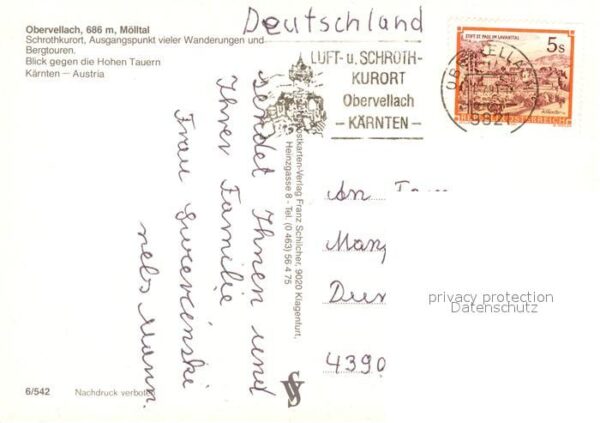 Deutschland
Obervellach, 686 m, Mölltal
Schrothkurort, Ausgangspunkt vieler Wanderungen und
Bergtouren.
Blick gegen die Hohen Tauern
Kärnten – Austria
LUFT- u. SCHROTH-
KURORT
Obervellach
– KÄRNTEN –
STIFT ST. PAUL IM LAVANTTAL
5s
OBERVELLA
9821
sendet Ihnen und
Ihrer Familie
Frau
nebs Mann.
Postkarten-Verlag Franz Schilcher, 9020 Klagenfurt,
Heinzgasse 8 - Tel. (0 463) 56 4 75
An
4390
privacy protection
Datenschutz
6/542 Nachdruck verboten